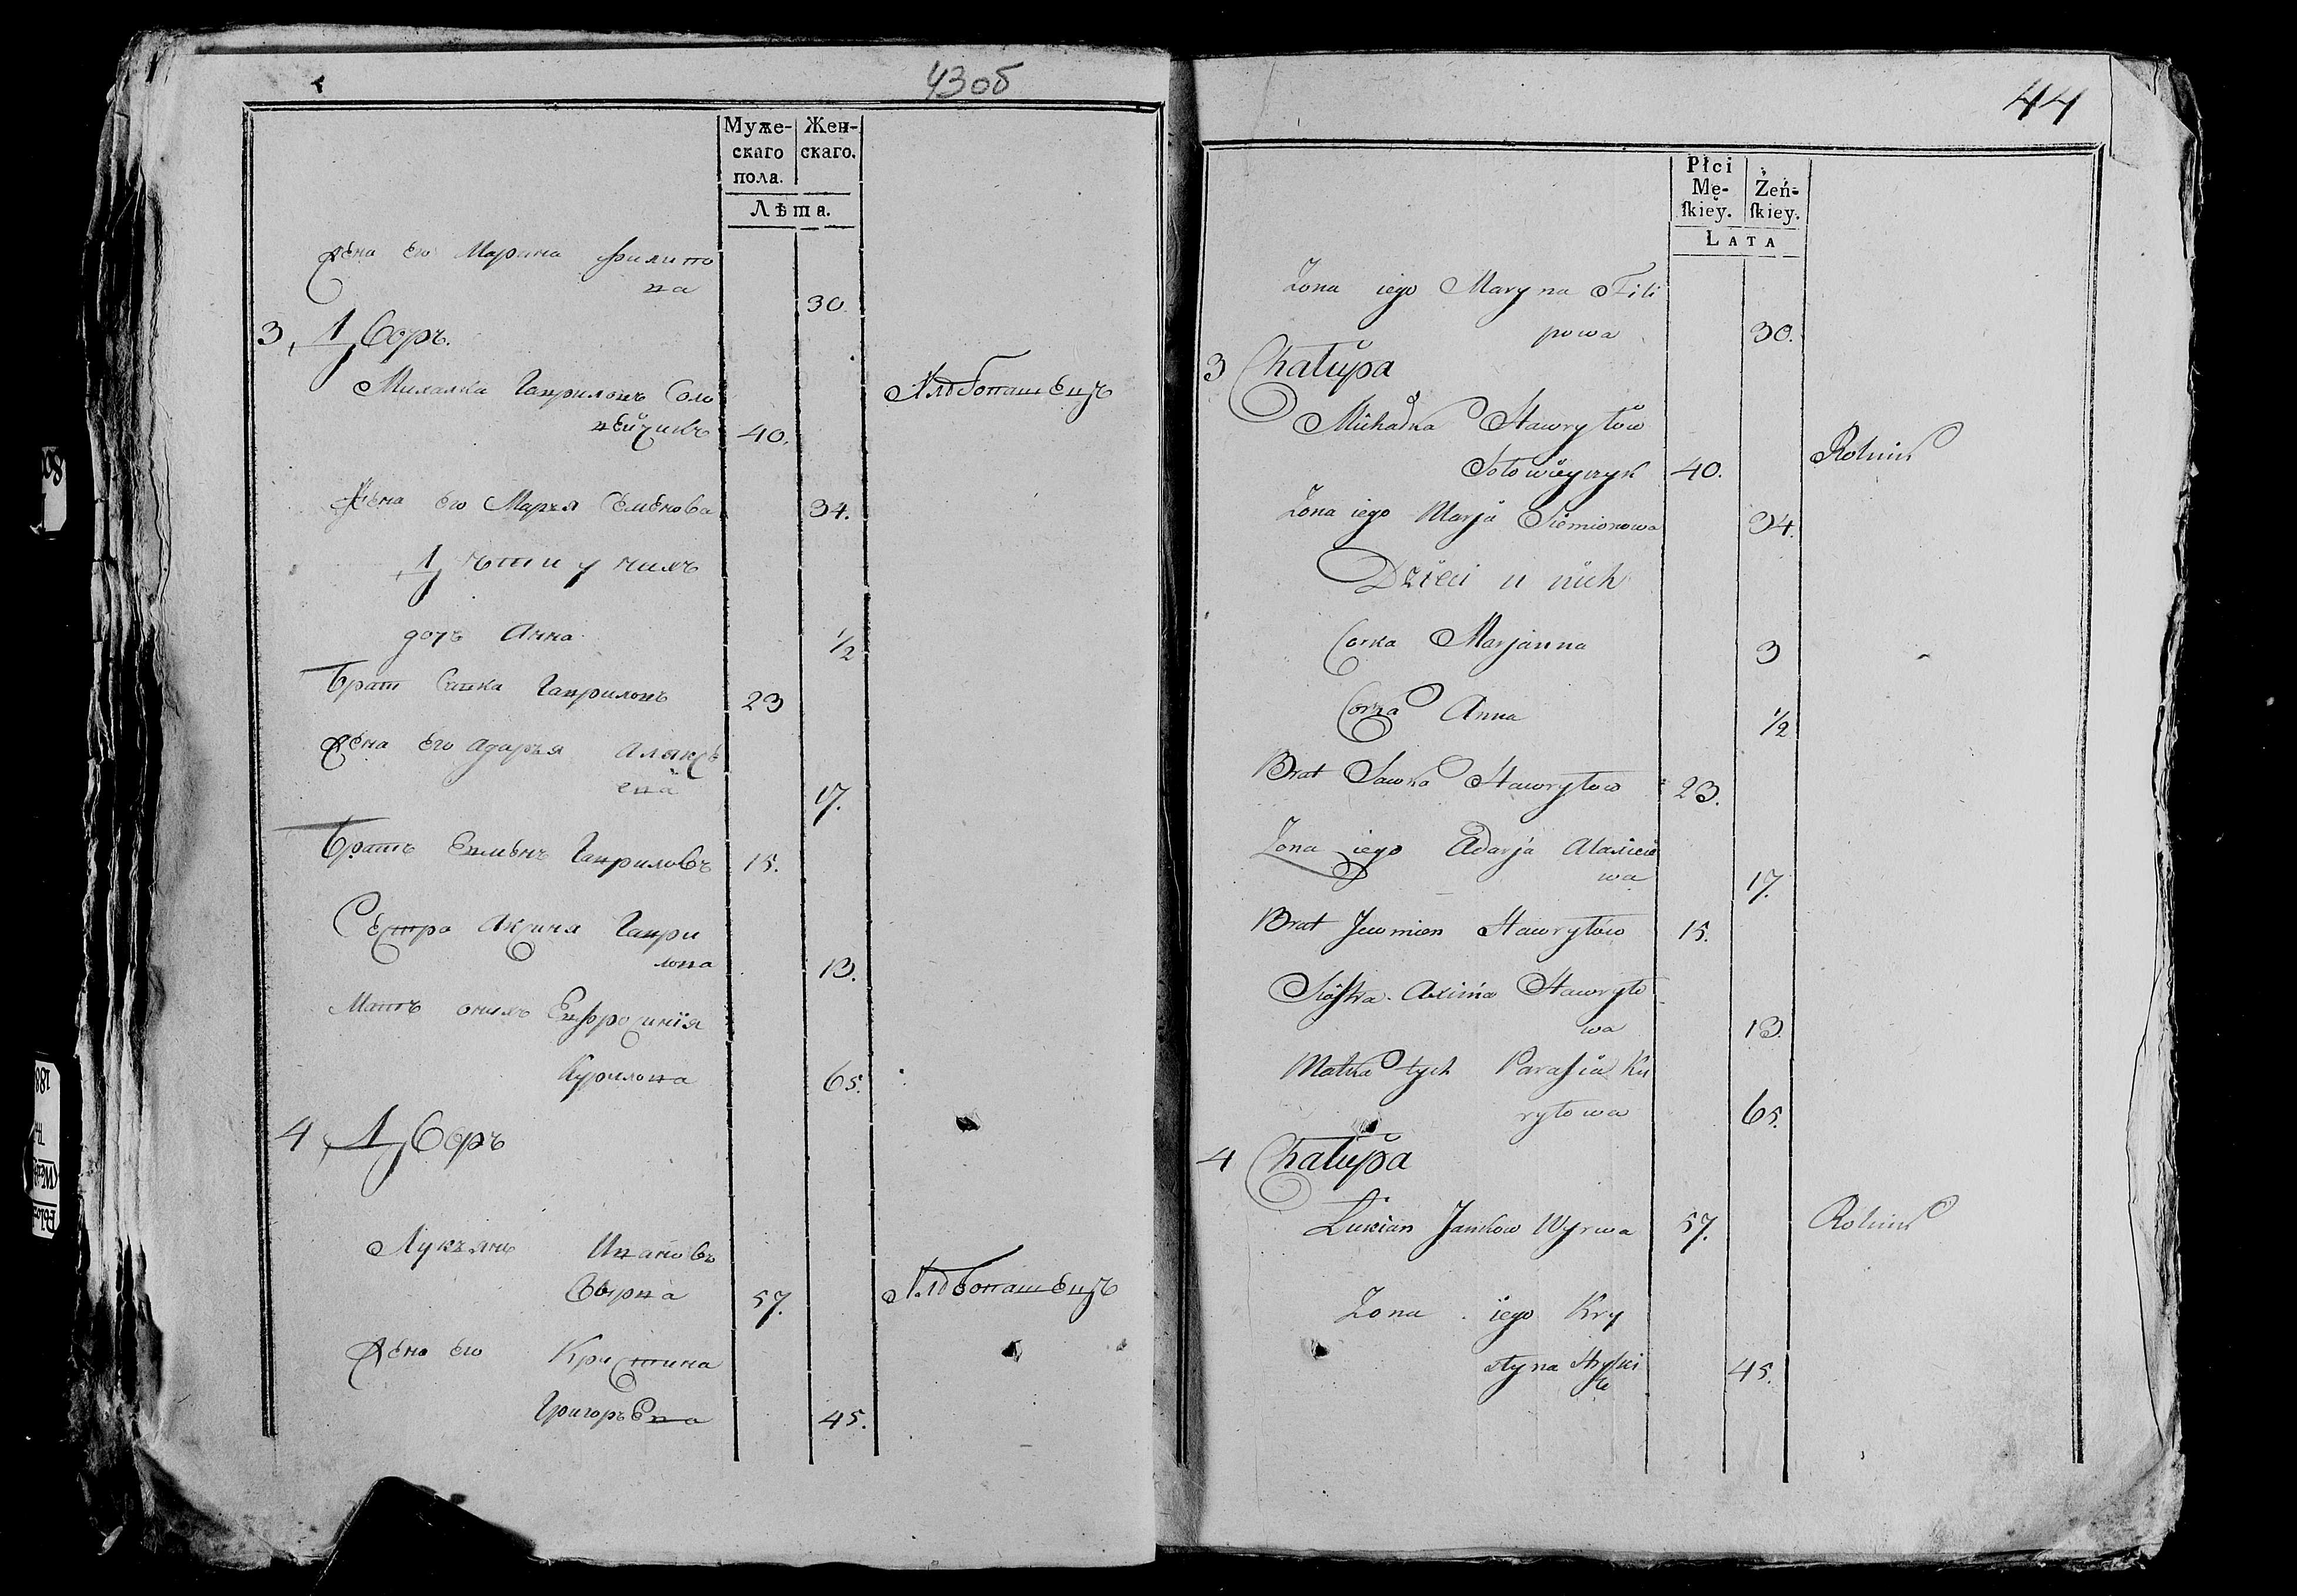 43об
Муже-
скаго
пола.
Жен-
скаго.
Лѣта.
Жена его Марина Филипо
ва 30.
3, Дворъ.
Михалка Гавриловъ Соло
вейчикъ 40. Хлѣбопашецъ
Жена его Марья Семенова 34.
Дѣти у нихъ
дочь Анна 1/2
Братъ Савка Гавриловъ 23
Жена его Адарья Алексѣ
ева 17.
Братъ Евменъ Гавриловъ 15.
Сестра Аксиня Гаври
лова 13.
Мать онихъ Евфросинія
Курилова 65.
4 Дворъ
Лукьянъ Ивановъ
Вырва 57. Хлѣбопашецъ
Жена его Кристина
Григорьева 45.
44
Płci
Mę-
skiey.
Żeń-
skiey.
LATA
Zona iego Maryna Fili
powa 30.
3 Chałupa
Michałka Hawryłow
Sołowieyczyk 40. Rolnik
Zona iego Marja Siemionowa 34.
Dzieci u nich
Corka Marjanna 3
Corka Anna 1/2
Brat Sawka Hawryłow 23.
Zona iego Adarja
wa 17.
Brat Jewmien Hawryłow 15.
Siostra Axinia Hawryło
wa 13.
Matka tych Parasia Ku
ryłowa 65.
4 Chałupa
Łukian Jankow Wyrwa 57. Rolnik
Zona iego Kry
styna 45.